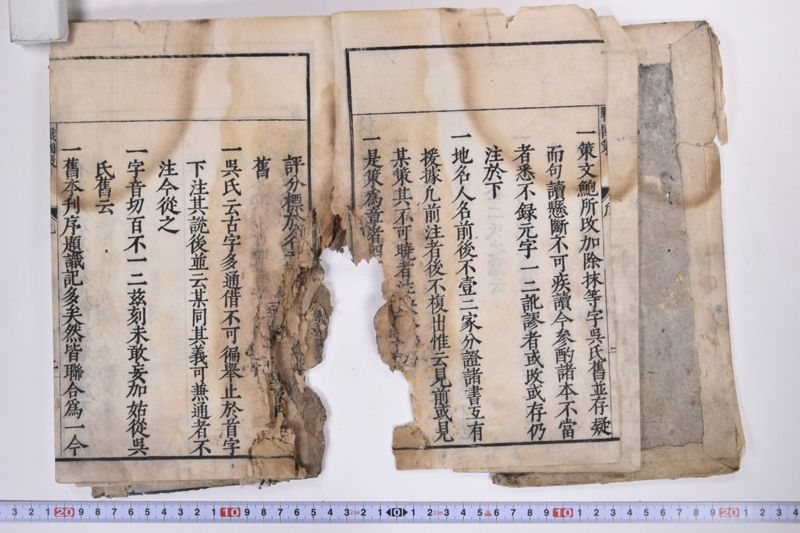 一策文鮑所攻加除抹等字吳氏舊並存疑
而句讀懸斷不可疾讀今參酌諸本不當
者悉不錄元字一二訛謬者或改或存仍
注於下
一地名人名前後不壹三家分證諸書互有
援據凡前注者後不複出惟云見前或見
某策其不可曉者注
一是策為章者
評分標於
舊
一吳氏云古字多通借不可徧舉止於首字
下注其說後並云某同其義可兼通者不
注今從之
一字音切百不一二茲刻未敢妄加姑從吳
氏舊云
一舊本刊序題識記多矣然皆聯合為一今